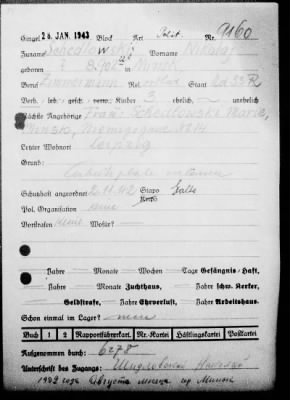 Eingel. 26. JAN. 1943 Block Art Polit. Nr. 9160
Zuname Schedlowski Vorname Nikolaj
geboren 8. in Minsk
Beruf Zimmermann Rel. orthod. Staat R
Verh. led. gesch. verw. Kinder 3 ehelich, — unehelich
Nächste Angehörige Frau: Schedlowski Marie,
Minsk,
Letzter Wohnort Leipzig
Grund:
Schutzhaft angeordnet 2.11.42 Stapo Halle
Kripo
Pol. Organisation keine
Vorstrafen keine Wofür?
Jahre — Monate Wochen — Tage Gefängnis/Haft,
Jahre — Monate Zuchthaus, Jahre schw. Kerker,
Geldstrafe, Jahre Ehrverlust, Jahre Arbeitshaus.
Schon einmal im Lager? nein
Buch 1 2 Rapportführerkart. Nr.-Kartei Häftlingskartei Postkartei
Aufgenommen durch: 6278
Unterschrift des Zugangs: Шидловский
года Августа месяца гор Минск